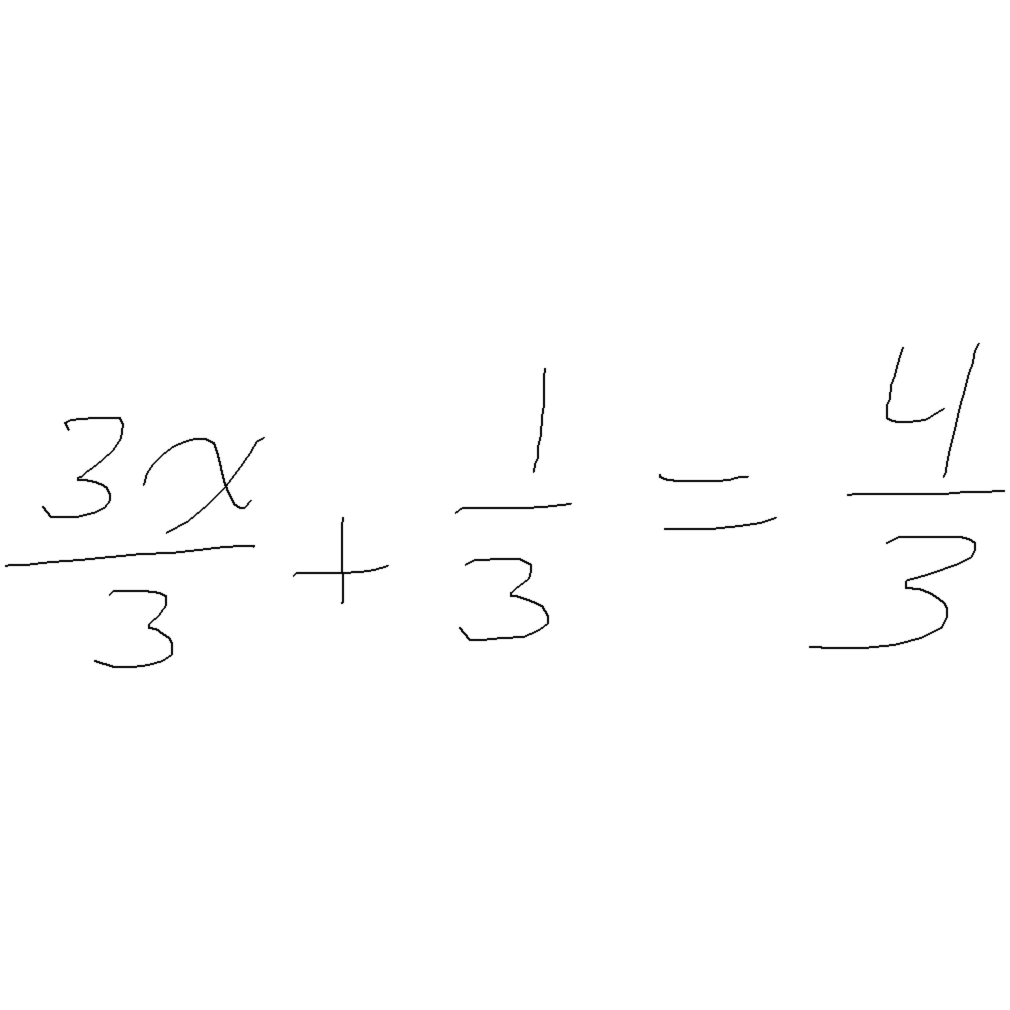 \frac{3x}{3} + \frac{1}{3} = \frac{4}{3}